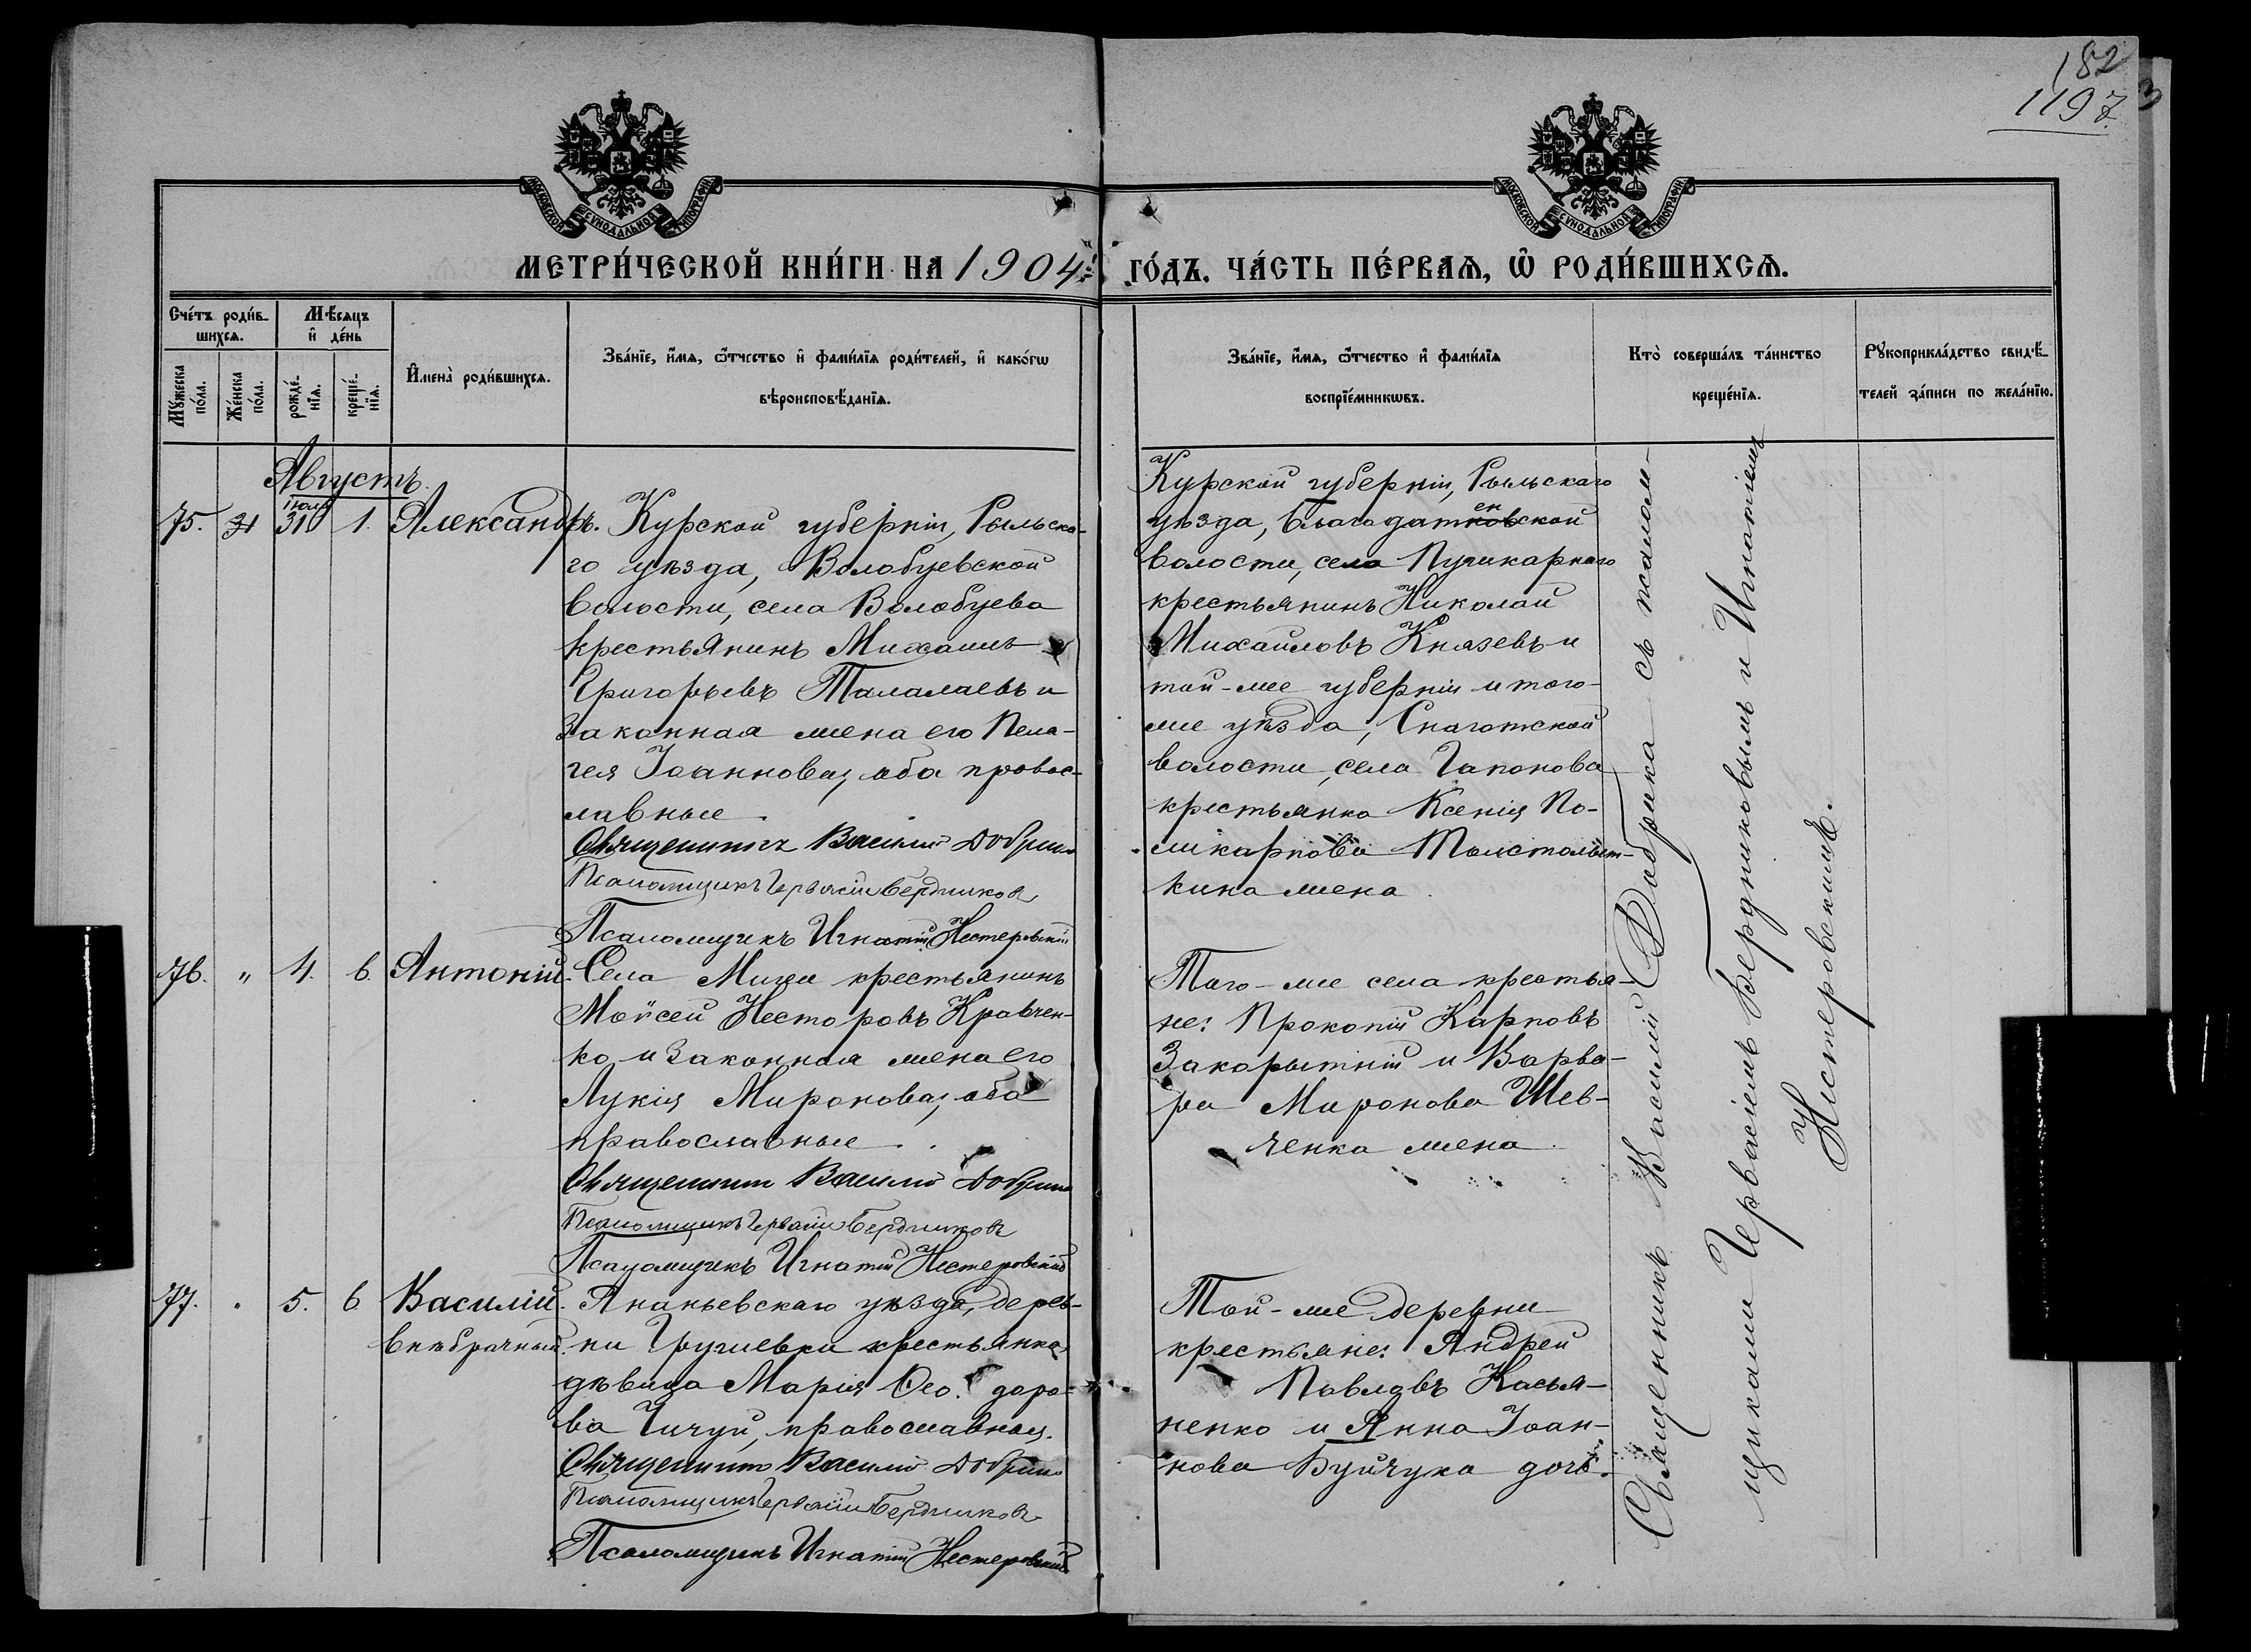 182
1197
МОСКОВСКОЙ СУНОДАЛЬНОЙ ТИПОГРАФІИ
МОСКОВСКОЙ СУНОДАЛЬНОЙ ТИПОГРАФІИ
МЕТРИ́ЧЕСКОЙ КНИ́ГИ НА 1904
ГО́ДЪ. ЧА́СТЬ ПЕ́РВАѦ, Ѡ҆ РОДИ́ВШИХСѦ.
Сче́тъ роди́в-
шихсѧ.
Мꙋ́жеска по́ла.
Же́нска по́ла.
Мѣ́сѧцъ
и҆ де́нь
рожде́-нїѧ.
креще́-нїѧ.
И҆мена̀ роди́вшихсѧ.
Зва́нїе, и҆́мѧ, ѻ҆́тчество и҆ фами́лїѧ роди́телей, и҆ како́гѡ
вѣроисповѣ́данїѧ.
Зва́нїе, и҆́мѧ, ѻ҆́тчество и҆ фами́лїѧ
воспрїе́мникѡвъ.
Кто̀ соверша́лъ та́инство
креще́нїѧ.
Рꙋкоприкла́дство свидѣ́-
телей за́писи по жела́нїю.
Августъ.
Іюля
75. 31 31 1. Александръ.
Курской губерніи, Рыльска-
го уѣзда, Волобуевской
волости, села Волобуева
крестьянинъ Михаилъ
Григорьевъ Талалаевъ и
законная жена его Пела-
гея Іоаннова, оба правос-
лавные.
Священникъ Василій Добрика
Псаломщикъ Гервасій Бердников
Псаломщикъ Игнатій Нестеровскій
Курской губерніи, Рыльскаго
уѣзда, Благодатновской
ен
волости, села Пушкарнаго
крестьянинъ Николай
Михайловъ Князевъ и
той-же губерніи и того-
же уѣзда, Снаготской
волости, села Гапонова
крестьянка Ксенія По-
ликарпова
кина жена.
76. " 4. 6. Антоній.
Села Михи крестьянинъ
Моѵсей Несторовъ Кравчен-
ко и законная жена его
Лукія Миронова, оба
православные.
Священник Василій Добрика
Псаломщикъ Гервасій Бердников
Псаломщикъ Игнатій Нестеровскій
Того-же села крестья-
не: Прокопій Карповъ
Закорытній и Варва-
ра Миронова Шев-
ченка жена.
77. " 5. 6 Василій.
внѣбрачный.
Ананьевскаго уѣзда, дерев-
ни Грушевки крестьянка
дѣвица Марія Ѳео. доро-
ва Чичуй, православная.
Священник Василій Добрика
Псаломщикъ Гервасій Бердников
Псаломщикъ Игнатій Нестеровскій
Той-же деревни
крестьяне: Андрей
Павловъ Касья-
ненко и Анна Іоан-
нова Буйчука дочь.
Священникъ Василій Добрика съ псалом-
щиками Гервасіемъ Бердниковымъ и Игнатіемъ
Нестеровскимъ.